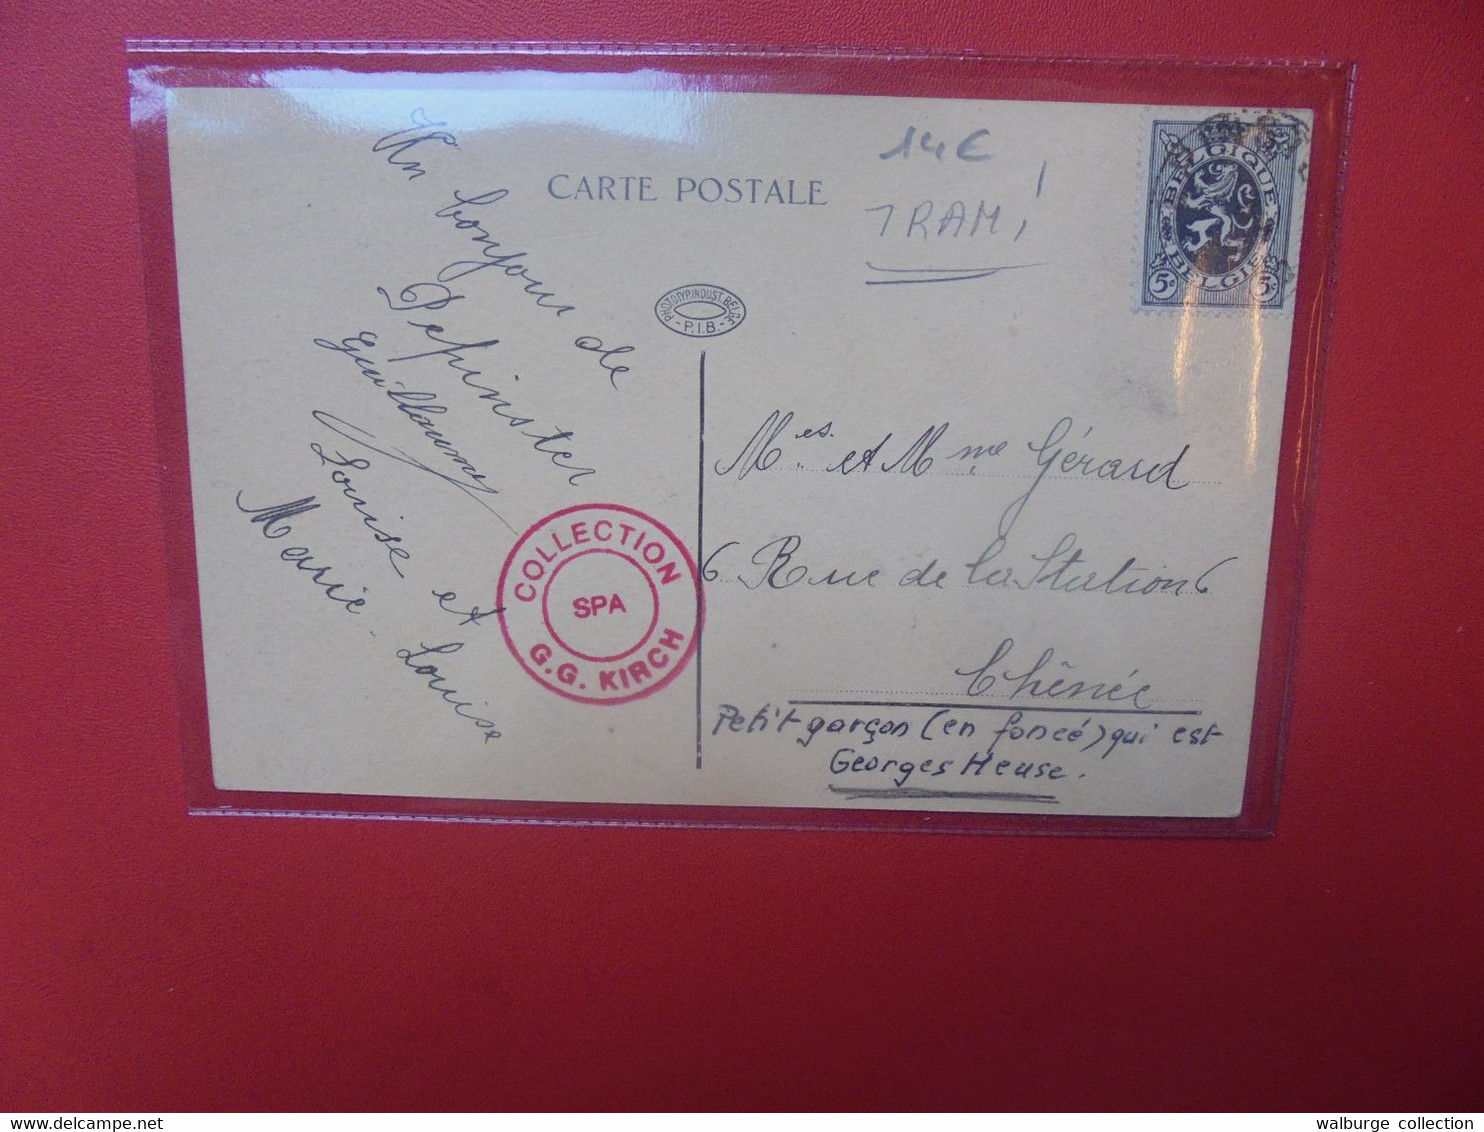 Un bonjour de
Pepinster
Guillaume
Louise et Louise
Marie.
CARTE POSTALE
PHOTOTYP. INDUST. BELGE
- P.I.B. -
14€
TRAM!
BELGIQUE
BELGIE
5c 5c
Mes. et Mme Gérard
6 Rue de la Station 6
Chênée
Petit garçon (en foncé) qui est
Georges Heuse.
COLLECTION
SPA
G.G. KIRCH
walburge collection